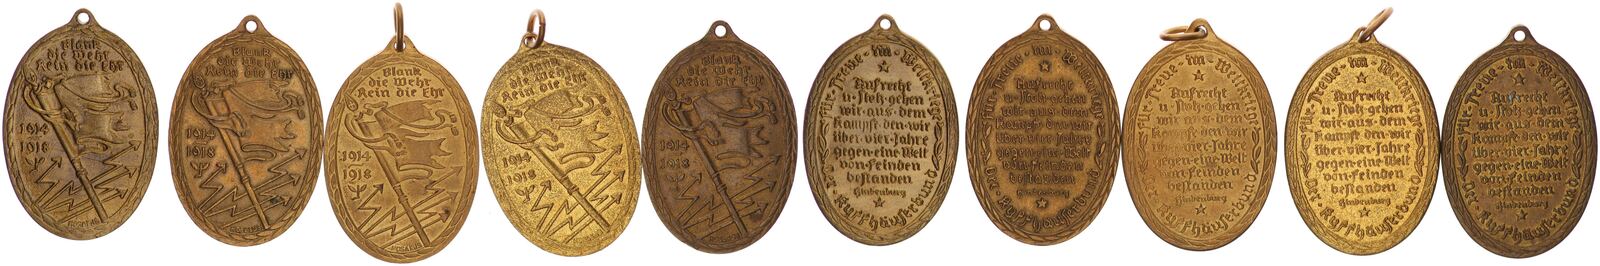 Blank
die Wehr
Rein die Ehr
1914
1918
Blank
die Wehr
Rein die Ehr
1914
1918
Blank
die Wehr
Rein die Ehr
1914
1918
Blank
die Wehr
Rein die Ehr
1914
1918
Blank
die Wehr
Rein die Ehr
1914
1918
Für · Treue · im · Weltkriege
Aufrecht
u · stolz · gehen
wir · aus · dem
Kampfe · den · wir
über · vier · Jahre
gegen · eine · Welt
von · Feinden
bestanden
Hindenburg
Der · Kyffhäuserbund
Für · Treue · im · Weltkriege
Aufrecht
u · stolz · gehen
wir · aus · dem
Kampfe · den · wir
über · vier · Jahre
gegen · eine · Welt
von · Feinden
bestanden
Hindenburg
Der · Kyffhäuserbund
Für · Treue · im · Weltkriege
Aufrecht
u · stolz · gehen
wir · aus · dem
Kampfe · den · wir
über · vier · Jahre
gegen · eine · Welt
von · Feinden
bestanden
Hindenburg
Der · Kyffhäuserbund
Für · Treue · im · Weltkriege
Aufrecht
u · stolz · gehen
wir · aus · dem
Kampfe · den · wir
über · vier · Jahre
gegen · eine · Welt
von · Feinden
bestanden
Hindenburg
Der · Kyffhäuserbund
Für · Treue · im · Weltkriege
Aufrecht
u · stolz · gehen
wir · aus · dem
Kampfe · den · wir
über · vier · Jahre
gegen · eine · Welt
von · Feinden
bestanden
Hindenburg
Der · Kyffhäuserbund